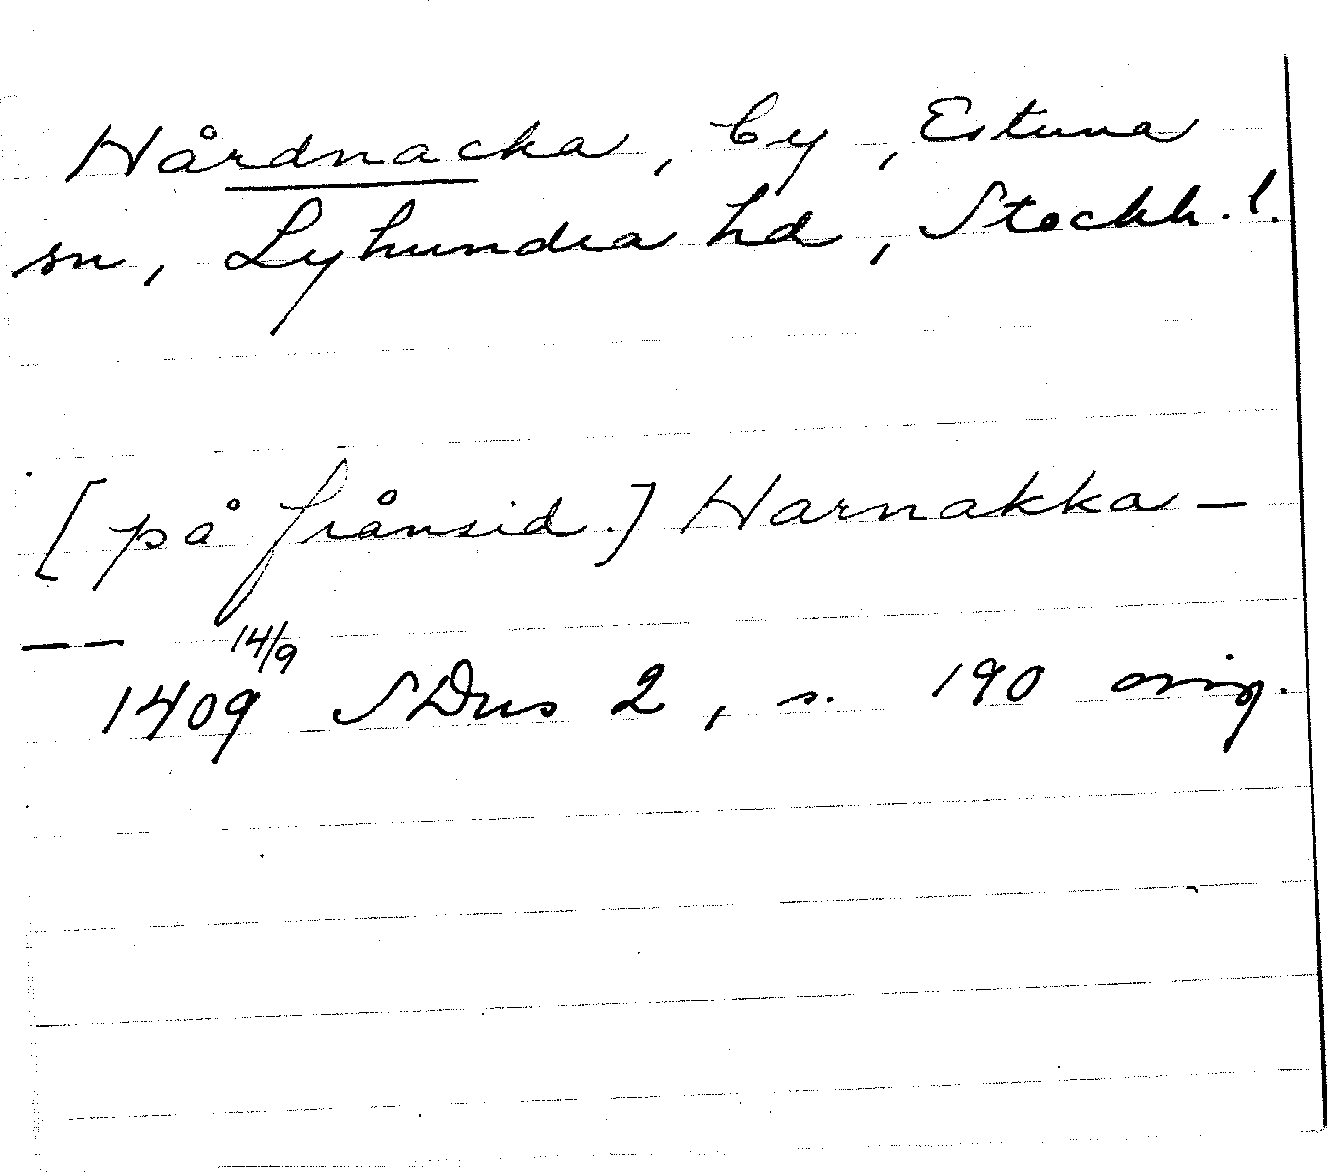 Hårdnacka, by, Estuna
sn, Lyhundra hd, Stockh. l.
[på frånsid.] Harnakka –
– – 14/9
1409 SDns 2, s. 190 orig.